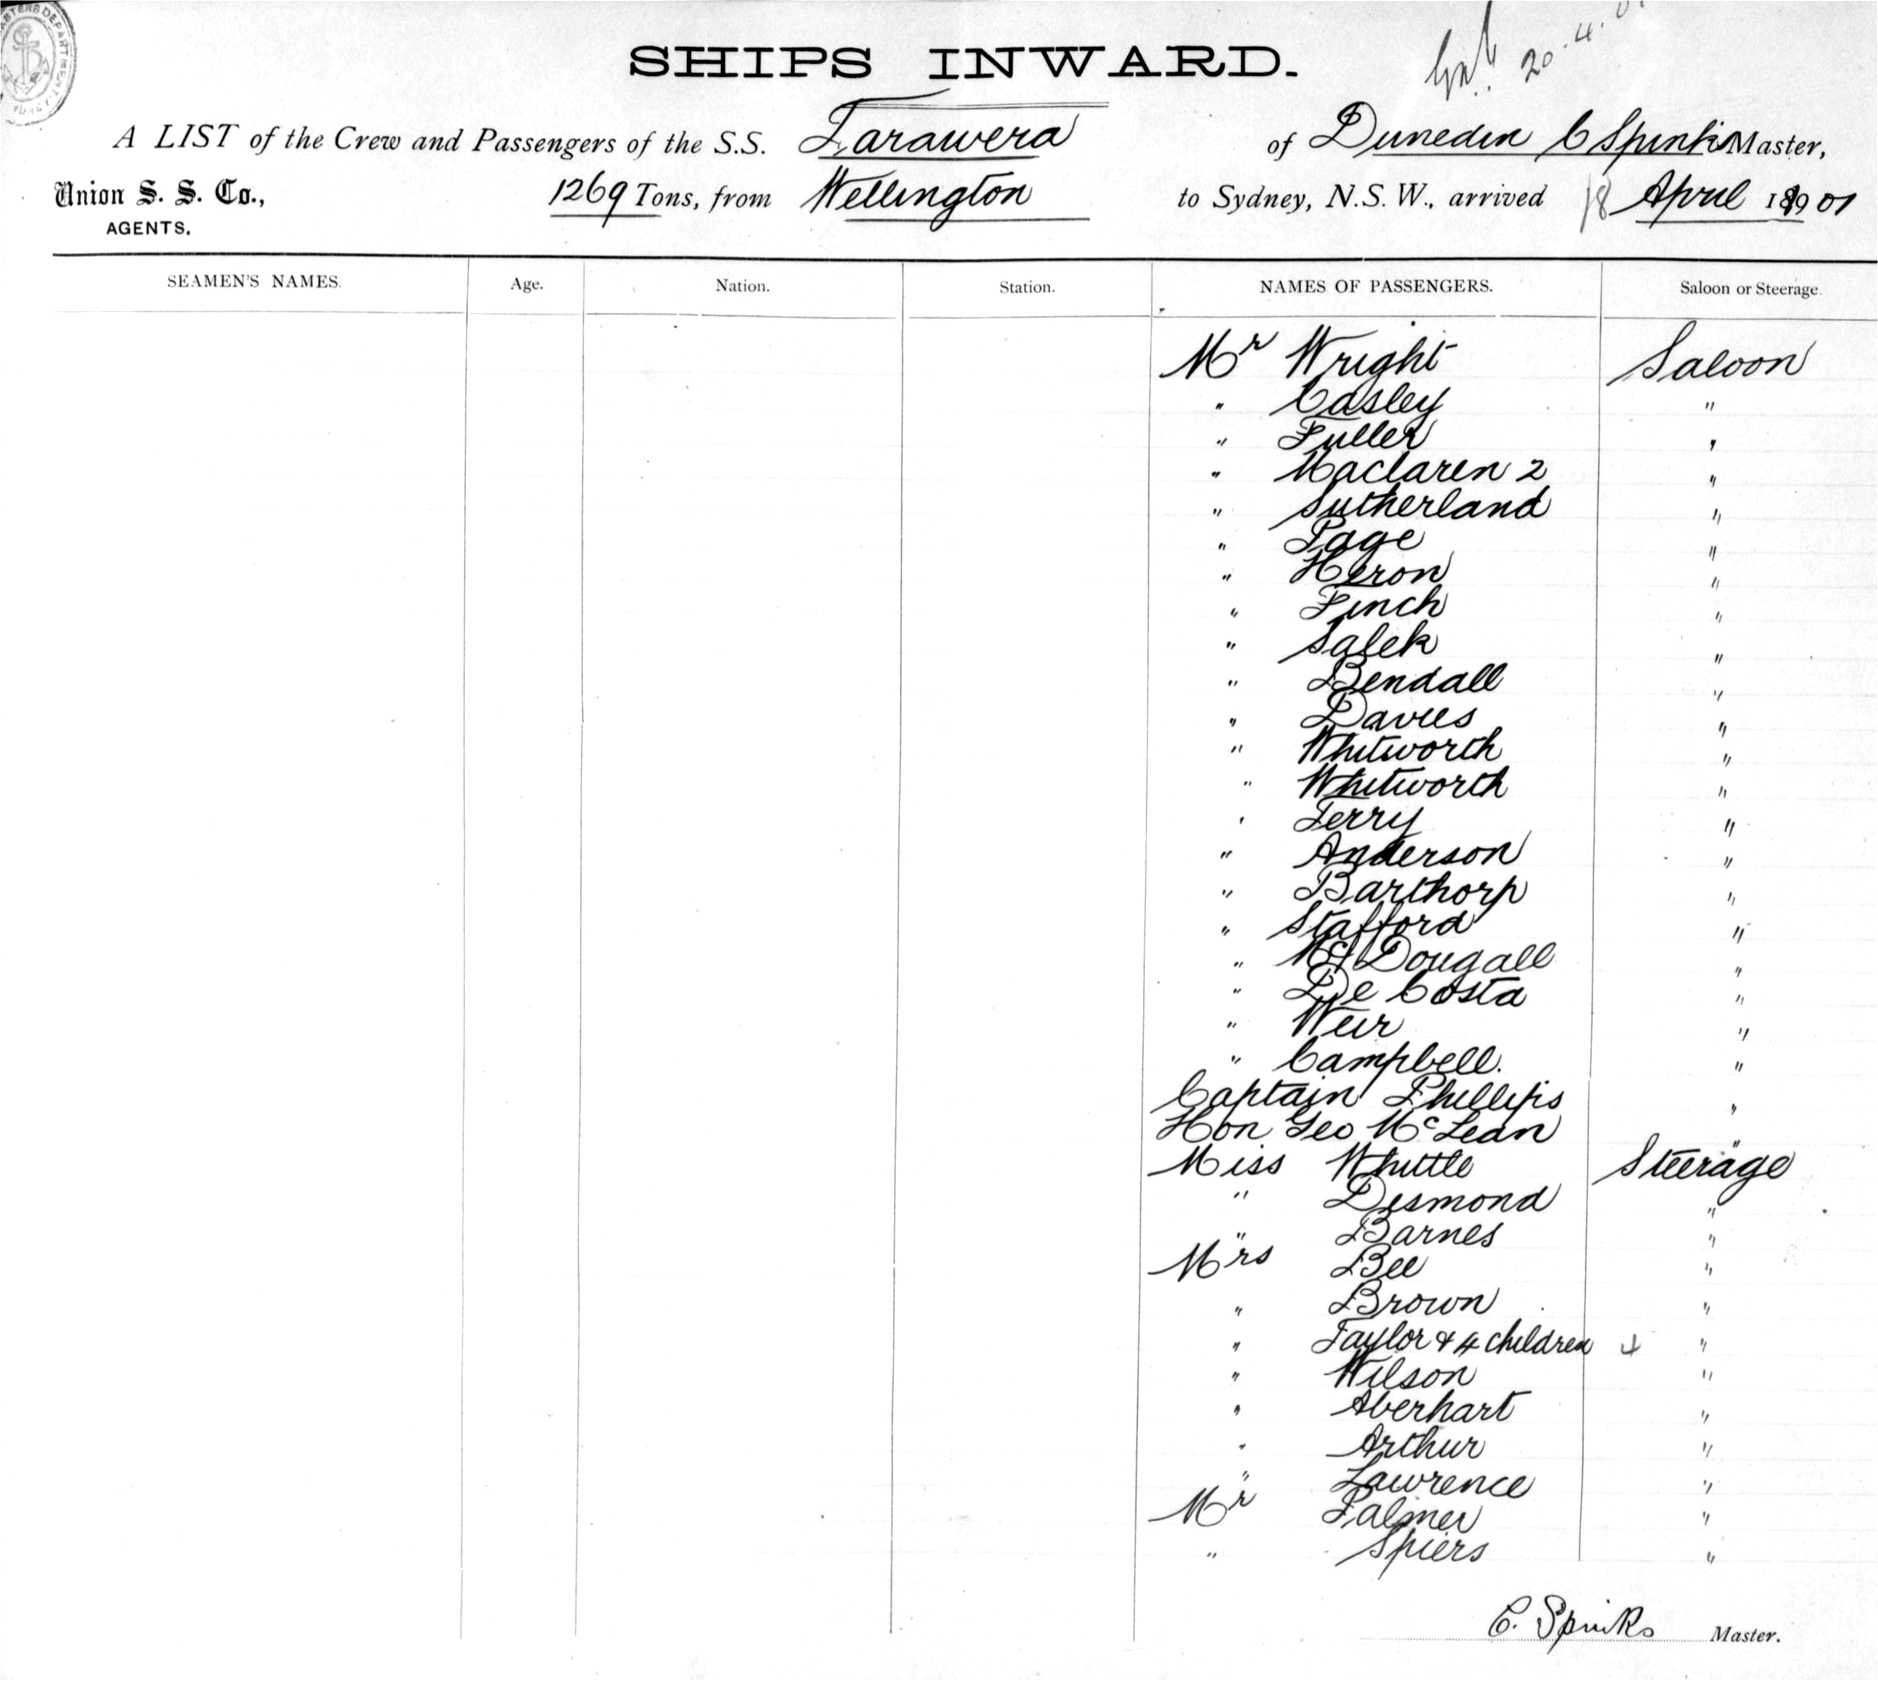 SHIPS INWARD.
20.4.0
A LIST of the Crew and Passengers of the S.S. Tarawera of Dunedin C Spinks Master,
Union S. S. Co., 1269 Tons, from Wellington to Sydney, N.S.W., arrived 18 April 1901
AGENTS.
SEAMEN'S NAMES. Age. Nation. Station. NAMES OF PASSENGERS. Saloon or Steerage.
Mr Wright Saloon
" Casley "
" Fuller "
" Maclaren 2 "
" Sutherland "
" Page "
" Heron "
" Finch "
" Salek "
" Bendall "
" Davies "
" Whitworth "
" Whitworth "
" Terry "
" Anderson "
" Barthorp "
" Stafford "
" McDougall "
" De Costa "
" Weir "
" Campbell. "
Captain Phillips "
Hon Geo McLean "
Miss Whittle Steerage
" Desmond "
" Barnes "
Mrs Bee "
" Brown "
" Taylor & 4 children 4 "
" Wilson "
" Aberhart "
" Arthur "
" Lawrence "
Mr Palmer "
" Spiers "
C. Spinks Master.